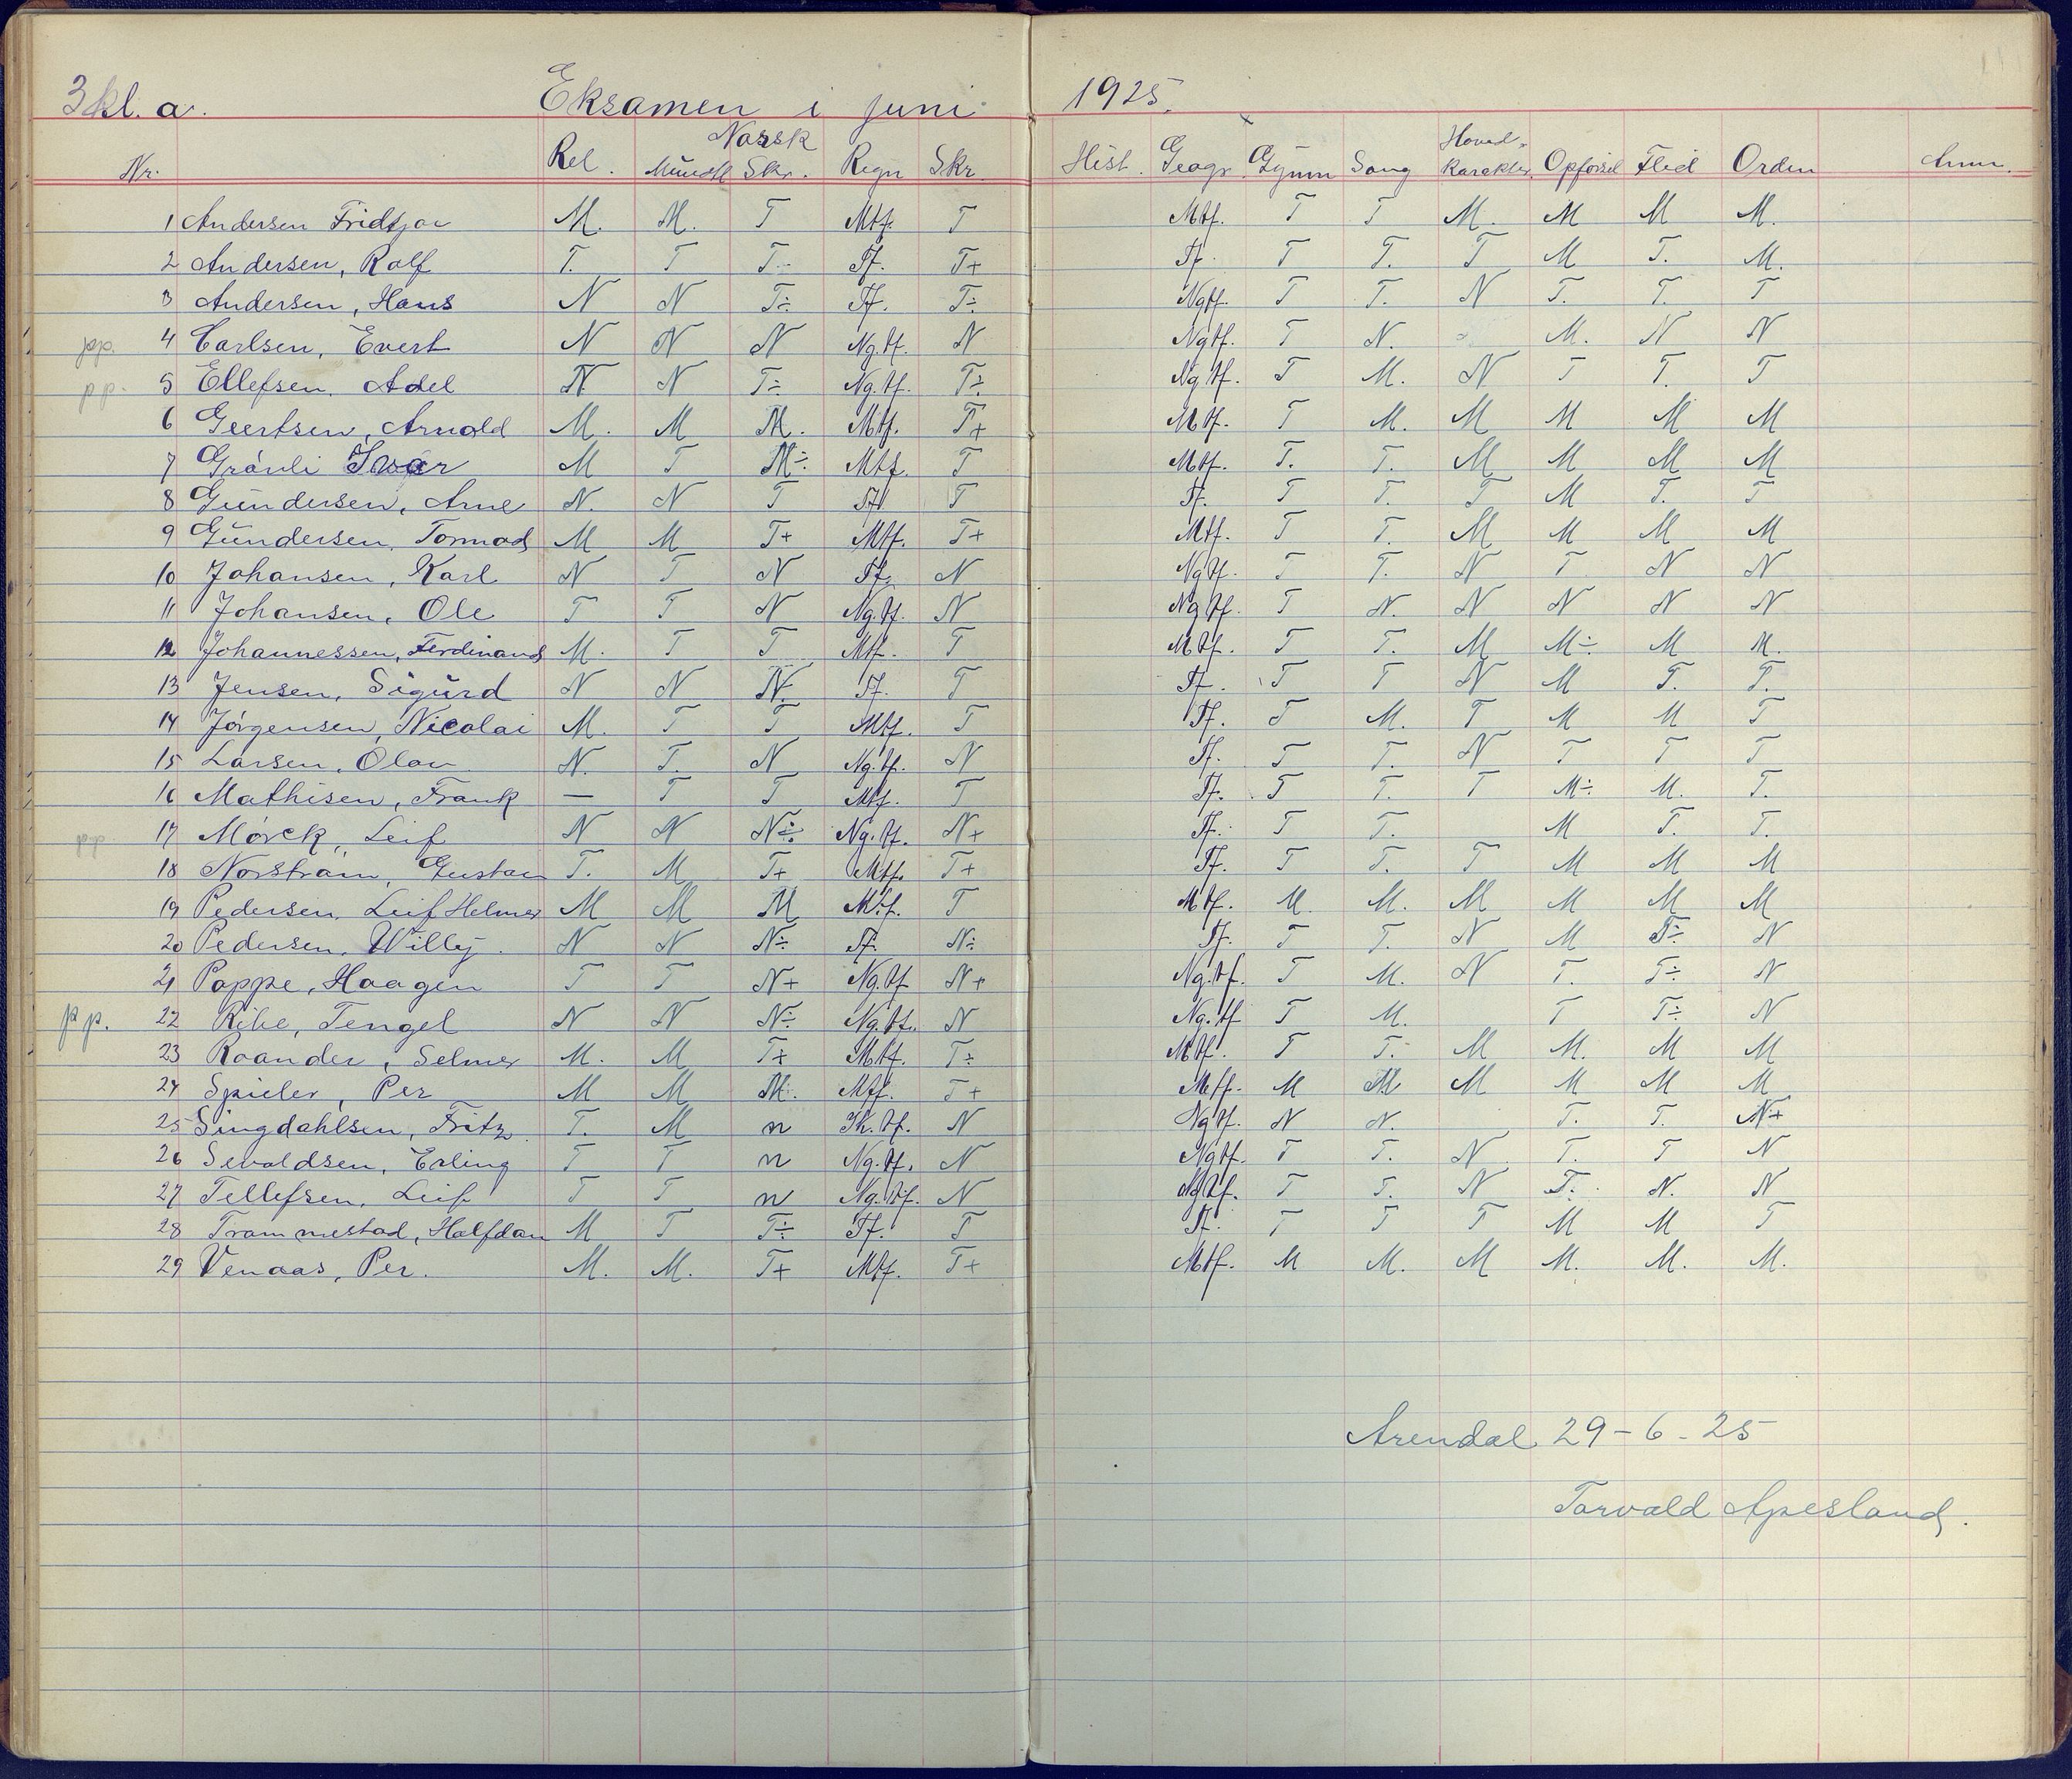 3 kl. a. Eksamen i juni 1925.
Norsk Hoved-
Nr. Rel. Mündtl Skr. Regn Skr. Hist. Geogr. Gymn Sang Karakter Opførsel Flid Orden Anm.
1 Andersen Fridtjov M. M. T Mtf. T Mtf. T T M. M M M.
2 Andersen, Rolf T. T T- Tf. T+ Tf. T T. T M T. M.
3 Andersen, Hans N N T÷ Tf. T÷ Ngtf. T T. N T. T. T
pp. 4 Carlsen, Evert N N N Ng.tf. N Ngtf. T N. M. N N
pp. 5 Ellefsen, Adel N N T÷ Ng.tf. T÷ Ng.tf. T M. N T T. T
6 Geertsen, Arnold M. M M. Mtf. T+ Mtf. T M. M M M M
7 Grånli Ivar M T M÷ Mtf. T Mtf. T. T. M M M M
8 Gündersen, Arne N. N T Tf. T Tf. T T. T M T. T
9 Gündersen, Tormod M M T+ Mtf. T+ Mtf. T T. M M M M
10 Johansen, Karl N T N Tf. N Ngtf. T T. N T N N
11 Johansen, Ole T T N Ng.tf. N Ngtf. T N. N N N N
12 Johannessen, Ferdinand M. T T Mtf. T Mtf. T T. M M÷ M M.
13 Jensen, Sigürd N N N. Tf. T Tf. T T N M T. T.
14 Jørgensen, Nicolai M. T T Mtf. T Tf. T M. T M M T
15 Larsen, Olav N. T. N Ng.tf. N Tf. T T. N T T T
16 Mathisen, Frank — T T Mtf. T Tf. T T. T M÷ M. T.
pp. 17 Mørck, Leif N N N÷ Ng.tf. N+ Tf. T T. M T. T.
18 Norstrøm, Gustav T. M T+ Mtf. T+ Tf. T T. T M M M
19 Pedersen, Leif Helmer M M M Mtf. T Mtf. M. M. M M M M
20 Pedersen, Willy. N N N÷ Tf. N÷ Tf. T T. N M T÷ N
21 Poppe, Haagen T T N+ Ng.tf N+ Ng.tf. T M. N T. T÷ N
pp. 22 Ribe, Tengel N N N÷ Ng.tf. N Ng.tf T M. T T÷ N
23 Roander, Selmer M. M T+ Mtf. T÷ Mtf. T T. M M. M M
24 Spieler, Per M M M. Mtf. T+ Mtf. M M M M M M
25 Singdahlsen, Fritz. T. M n N Ngtf. N N. T. T. N+
26 Sevaldsen, Erling T T n Ng.tf. N Ngtf. T T. N T. T N
27 Tellefsen, Leif T T n Ng.tf. N Ngtf. T T. N T. N. N
28 Trommestad, Halfdan M T T÷ Tf. T Tf. T T T M M T
29 Venaas, Per. M. M. T+ Mtf. T+ Mtf. M M. M M. M. M.
Arendal 29-6-25
Torvald Apesland.